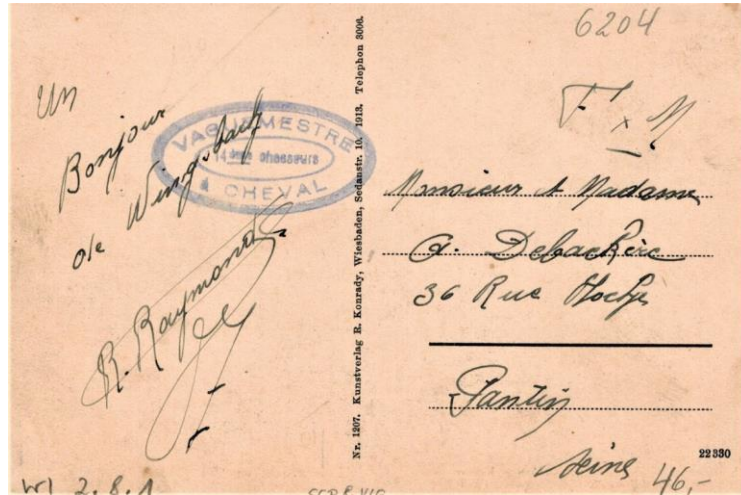 6204
Un
Bonjour
de Wingsbach
R. Raymond
VAGUEMESTRE
14eme chasseurs
A CHEVAL
Nr. 1207. Kunstverlag R. Konrady, Wiesbaden, Sedanstr. 10. 1913. Telephon 3006.
F x M
Monsieur & Madame
A. Debackère
36 Rue Hoche
Pantin
Seine
22330
46,-
WI 2.8.1